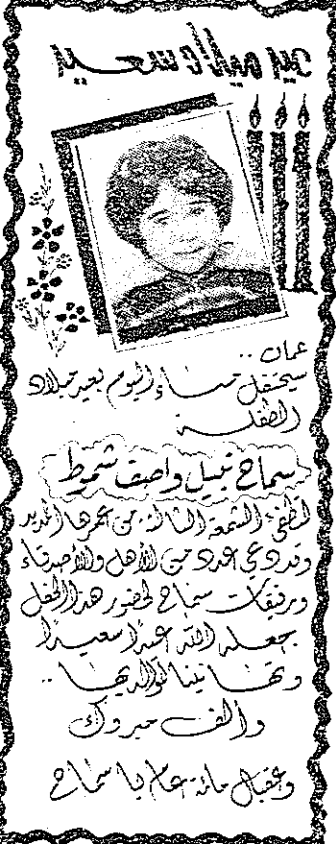 عيد ميلاد سعيد
عمان ..
سيحتفل مساء اليوم بعيد ميلاد
الطفلة
سماح نبيل واصف شموط
لتطفئ الشمعة الثالثة من عمرها المديد
وقد دعي عدد من الأهل والأصدقاء
ورفيقات سماح لحضور هذا الحفل
جعله الله عيدا سعيدا
وتهانينا لوالديها ..
والف مبروك
وعقبال مائة عام يا سماح